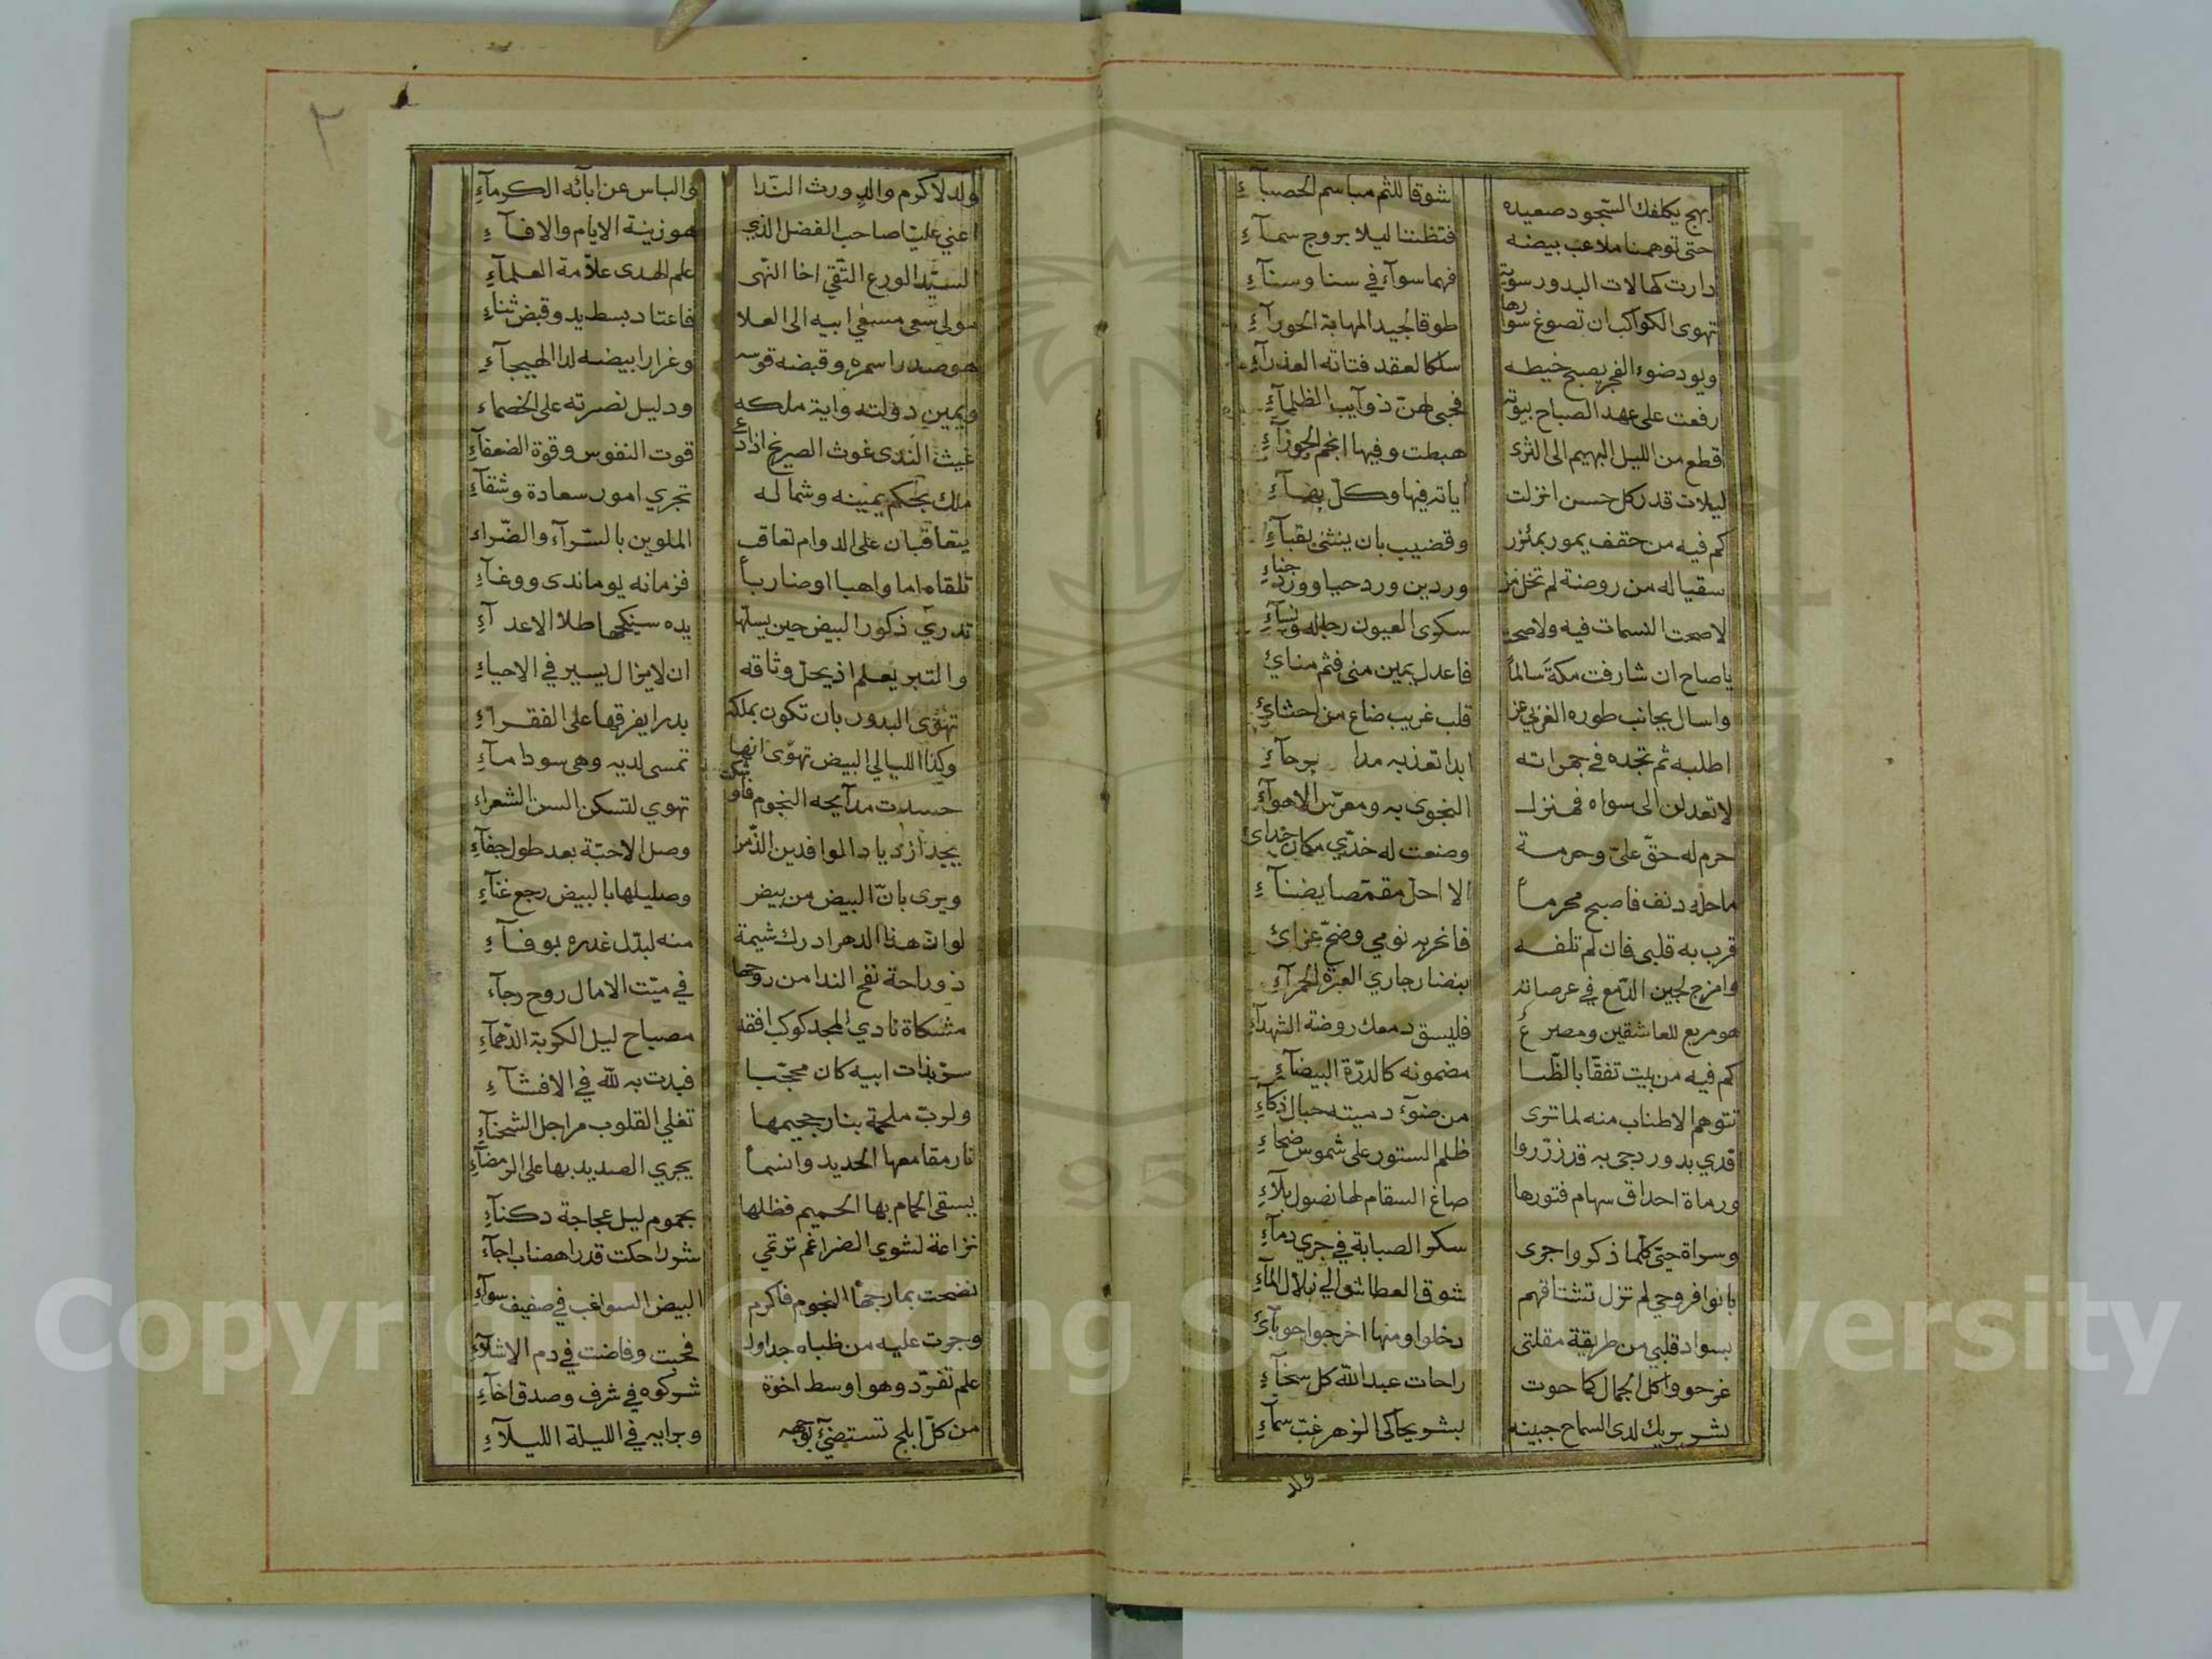 بهج يكلفك السجود صعيده شوقا للثم مباسم الحصباء
حتى توهمنا ملاعب بيضه فتظننا ليلا بروج سماء
دارت كهالات البدور سوية فهما سواء في سنا وسناء
تهوى الكواكب ان تصوغ سوارها طوقا لجيد المهابة الحوراء
ويود ضوء الفجر يصبح خيطه سلكا لعقد فتاته العذراء
رفعت على عهد الصباح بيوته فحبى لهن ذوآيب الظلماء
قطع من الليل البهيم الى الثرى هبطت وفيها انجم الجوزاء
ليلات قدر كل حسن انزلت اياته فيها وكل بهاء
كم فيه من حقف يمور بمئزر وقضيب بان ينثنى بقباء
سقيا له من روضة لم تخل من وردين ورد حيا وورد جناء
لا صحت النسمات فيه ولا صحى سكرى العيون رجاله ونساء
ياصاح ان شارفت مكة سالما فاعدل يمين منى فثم مناي
واسال بجانب طوره الغربي عن قلب غريب ضاع من احشاي
اطلبه ثم تجده في جمراته ابدا تعذبه مدا برحاء
لا تعدلن الى سواه فمنزل النجوى به ومعرس الاهواء
حرم له حق علي وحرمة وضعت له خدي مكان خداي
ما حله دنف فاصبح محرما الا احل مقمصا بضناء
قرب به قلبى فان لم تلفه فانحر به نومي وضح عزاي
وامزج لجين الدمع في عرصاته بنضار جاري العبرة الحمراء
هو مربع للعاشقين ومصرع فليسق دمعك روضة الشهداء
كم فيه من بيت تفقا بالظبا مضمونه كالدرة البيضاء
تتوهم الاطناب منه لما ترى من ضوء دميته حبال ذكاء
قدي بدور دجى به قد زرروا ظلم الستور على شموس ضحاء
ورماة احداق سهام فتورها صاغ السقام لها نصول بلاء
وسراة حي كلما ذكروا جرى سكر الصبابة في جري دماء
بانوا فروحي لم تزل تشتاقهم شوق العطاش الى زلال الماء
بسواد قلبي من طريقة مقلتى دخلوا ومنها اخرجوا حوباي
غر حووا كل الجمال كما حوت راحات عبد الله كل سخاء
بشر يريك لدى السماح جبينه بشر يحاكى الزهر غب سماء
ولد
٢
ولد لاكرم والد ورث الندا والباس عن ابائه الكرماء
اعني عليا صاحب الفضل الذي هو زينة الايام والافاء
السيد الورع التقي اخا النهى علم الهدى علامة العلماء
مولى سعى مسعى ابيه الى العلا فاعتاد بسط يد وقبض ثناء
هو صدر اسمره وقبضة قوسه وغرار ابيضه لدا الهيجاء
ويمين دولته واية ملكه ودليل نصرته على الخصماء
غيث الندى غوث الصريخ اذا دعى قوت النفوس وقوة الضعفاء
ملك بحكم يمينه وشماله تجري امور سعادة وشقاء
يتعاقبان على الدوام تعاقب الملوين بالسراء والضراء
تلقاه اما واهبا او ضاربا فزمانه يوماندى ووغاء
تدري ذكور البيض حين يسلها يده سينكحها طلا الاعداء
والتبر يعلم اذ يحل وثاقه ان لا يزال يسير في الاحياء
تهوى البدور بان تكون بملكه بدرا يفرقها على الفقراء
وكذا الليالي البيض تهوى انها تمسى لديه وهى سود اماء
حسدت مدايحه النجوم فاوشكت تهوي لتسكن السن الشعراء
يجد ازدياد الوافدين الذ من وصل الاحبة بعد طول جفاء
ويرى بان البيض من بيض وصليلها بالبيض رجع غناء
لو ان هذا الدهر ادرك شيمة منه لبدل غدره بوفاء
ذو راحة نفح الندا من روحها في ميت الامال روح رجاء
مشكاة نادي المجد كوكب افقه مصباح ليل الكربة الدهماء
سر بذات ابيه كان محجبا فبدت به لله في الافشاء
ولرب ملحمة بنار جحيمها تغلي القلوب مراجل الشحناء
نار مقامعها الحديد وانما يجري الصديد بها على الرمضاء
يسقى الحمام بها الحميم فظلها يحموم ليل عجاجة دكناء
نزاعة لشوى الضراغم ترتمي شررا حكت قدرا هضاب اجاء
نضحت بمارجها النجوم فاكرم البيض السواغب في صفيف سواء
وجرت عليه من ظباه جداول فخبت وفاضت في دم الاشلاء
علم تفرد وهو اوسط اخوة شركوه في شرف وصدق اخاء
من كل ابلج تستضيء بوجهه وبرايه في الليلة الليلاء